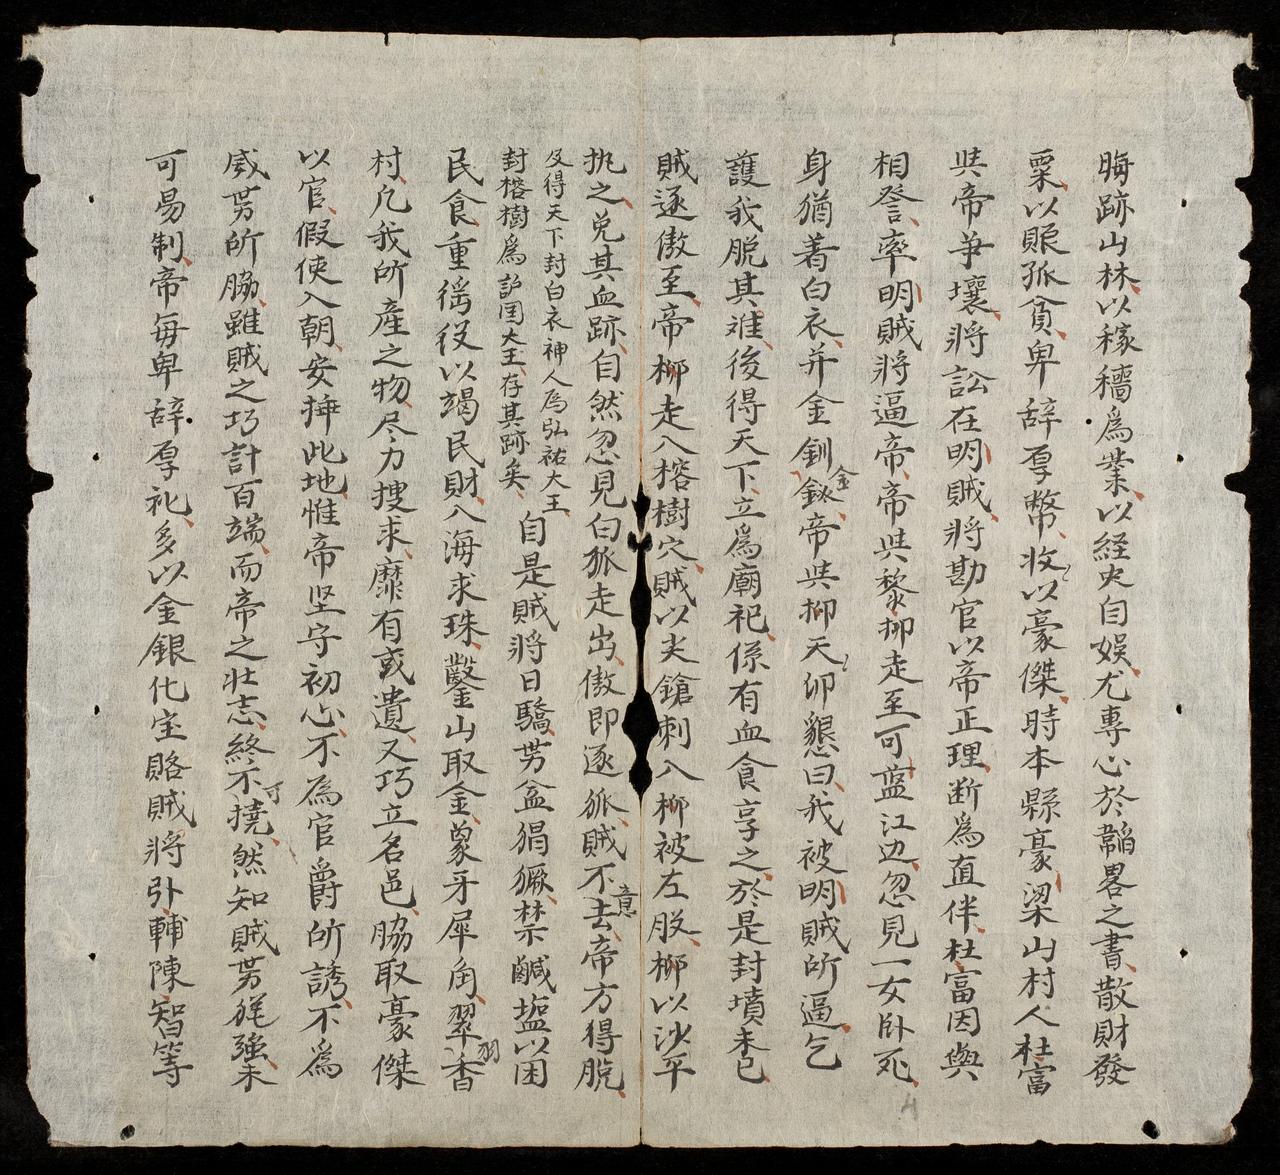 晦跡山林以稼穡爲業以経史自娱尤專心於韜畧之書散財發
粟以賑孤貧卑辞厚幣收以豪傑時本縣豪梁山村人杜富
與帝争壤將訟在明賊將勘官以帝正理断爲直伴杜富因與
相詧率明賊將逼帝帝與黎柳走至可藍江边忽見一女卧死
身猶着白衣并金釧金釵帝與柳仰天懇曰我被明賊所逼乞
護我脱其难後得天下立爲廟祀係有血食享之於是封墳未已
賊逐傲至帝柳走入榕樹穴賊以尖鎗刺入柳被左股柳以沙平
执之免其血跡自然忽見白狐走出傲即逐狐賊不意去帝方得脱
及得天下封白衣神人爲弘祐大王
封榕樹爲護国大王存其跡矣
自是賊將日驕势益猖獗禁鹹塩以困
民食重徭役以竭民財入海求珠鑿山取金象牙犀角翠羽香
村凡我所產之物尽力搜求靡有或遺又巧立名邑脇取豪傑
以官假使入朝安揷此地惟帝坚守初心不為官爵所誘不爲
威势所脇雖賊之巧計百端而帝之壮志終不可撓然知賊势旺強未
可易制帝每卑辞厚礼多以金銀化宝賂賊將卟輔陳智等